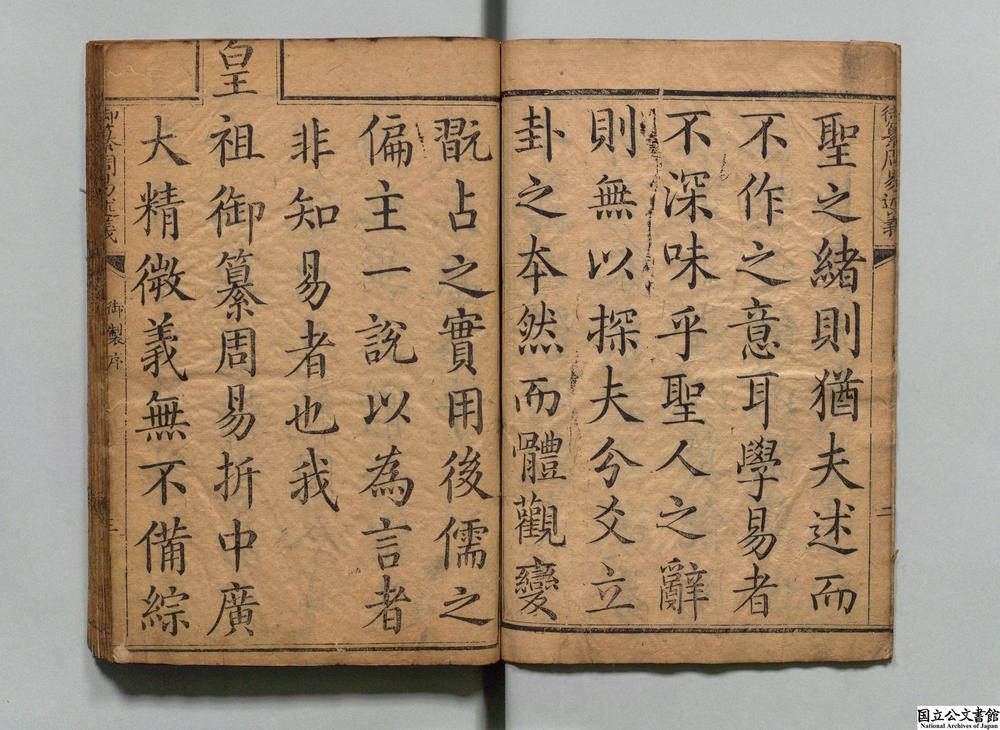 聖之緒則猶夫述而
不作之意耳學易者
不深味乎聖人之辭
則無以探夫分爻立
卦之本然而體觀變
翫占之實用後儒之
偏主一說以為言者
非知易者也我
皇祖御纂周易折中廣
大精微義無不備綜
御纂周易述義
二
御纂周易述義
御製序
三
国立公文書館
National Archives of Japan